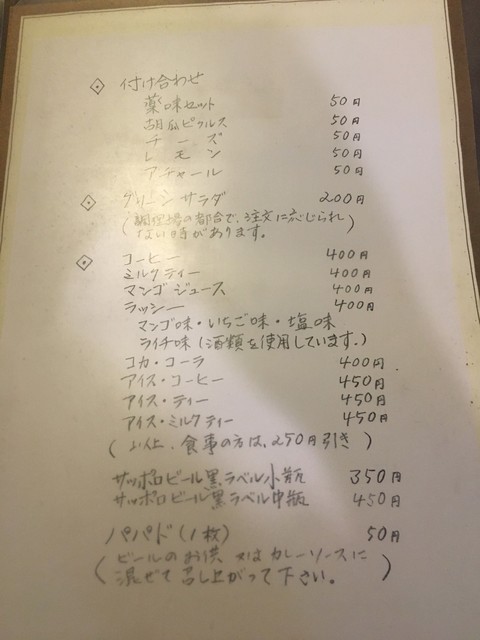 ◇ 付け合わせ
薬味セット 50円
胡瓜ピクルス 50円
チーズ 50円
レモン 50円
アチャール 50円
◇ グリーンサラダ 200円
(調理場の都合で、ご注文に応じられ
ない時があります。)
◇ コーヒー 400円
ミルクティー 400円
マンゴジュース 400円
ラッシー 400円
マンゴ味・いちご味・塩味
ライチ味(酒類を使用しています。)
コカ・コーラ 400円
アイス・コーヒー 450円
アイス・ティー 450円
アイス・ミルクティー 450円
(以上、食事の方は、250円引き)
サッポロビール黒ラベル小瓶 350円
サッポロビール黒ラベル中瓶 450円
パパド(1枚) 50円
(ビールのお供 又はカレーソースに
混ぜて召し上がって下さい。)